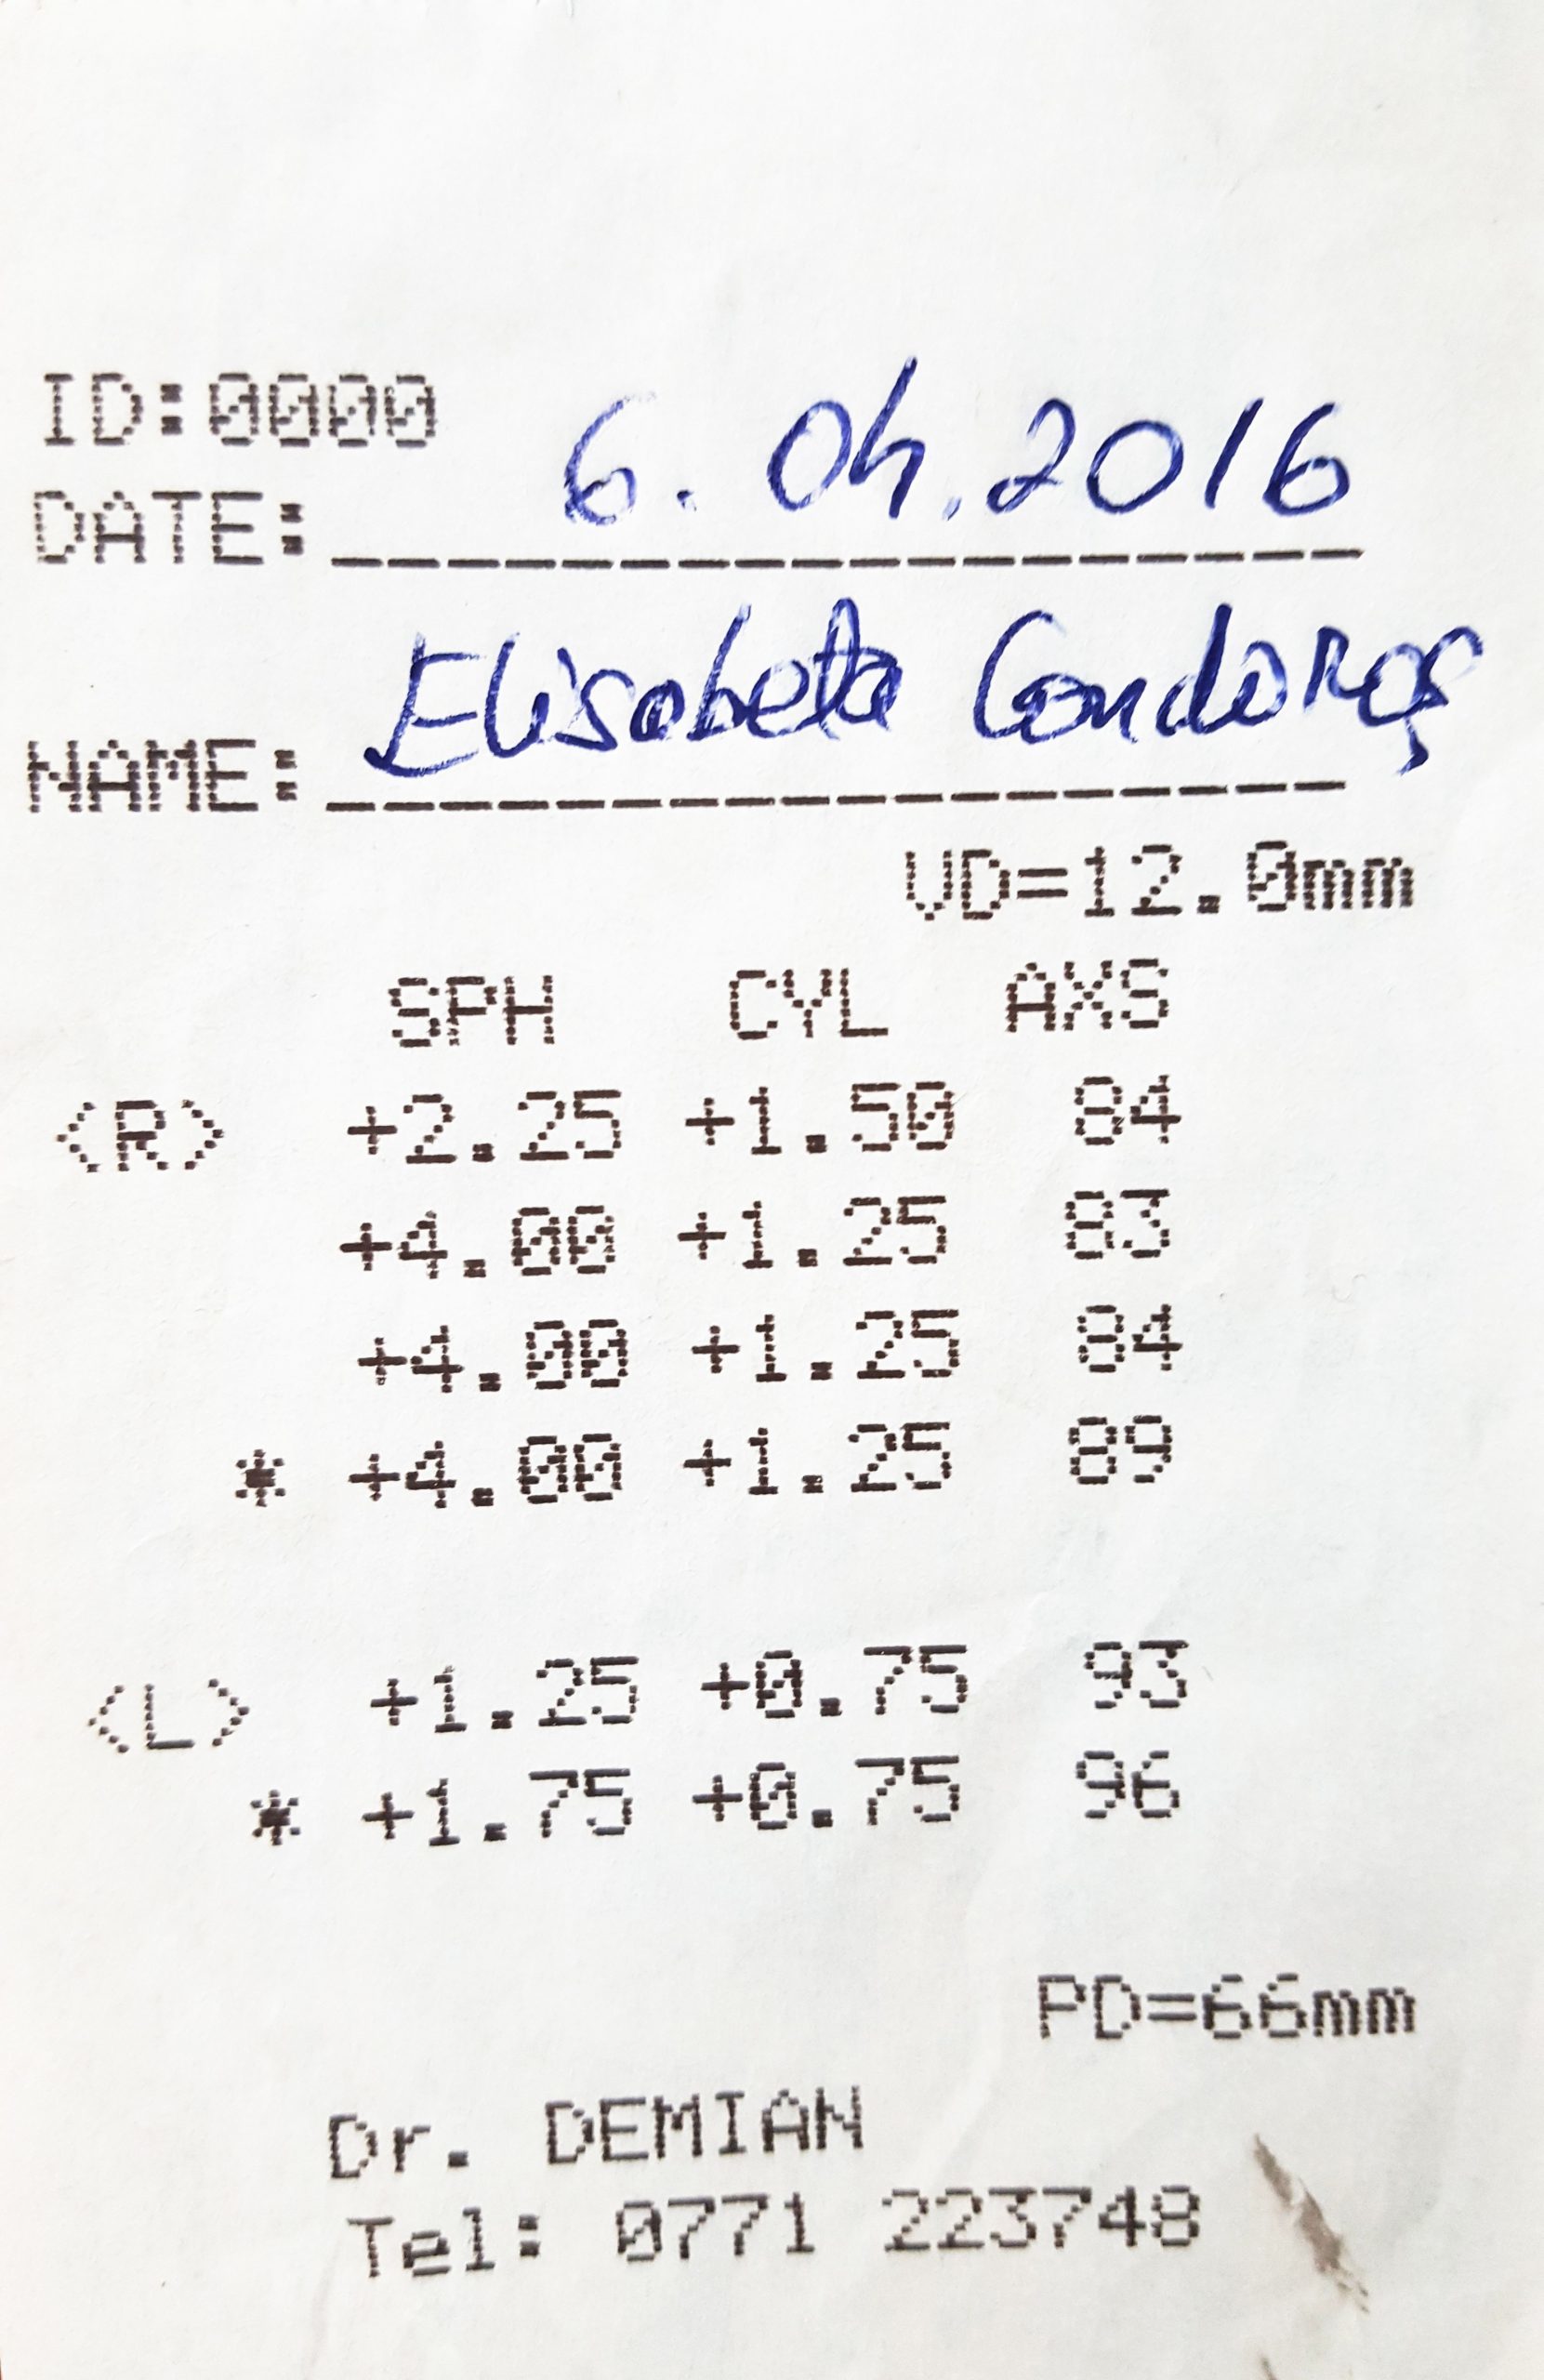 ID:0000
DATE: 6.04.2016
NAME: Elisabeta Condoraș
VD=12.0mm
SPH CYL AXS
<R> +2.25 +1.50 84
+4.00 +1.25 83
+4.00 +1.25 84
* +4.00 +1.25 89
<L> +1.25 +0.75 93
* +1.75 +0.75 96
PD=66mm
Dr. DEMIAN
Tel: 0771 223748